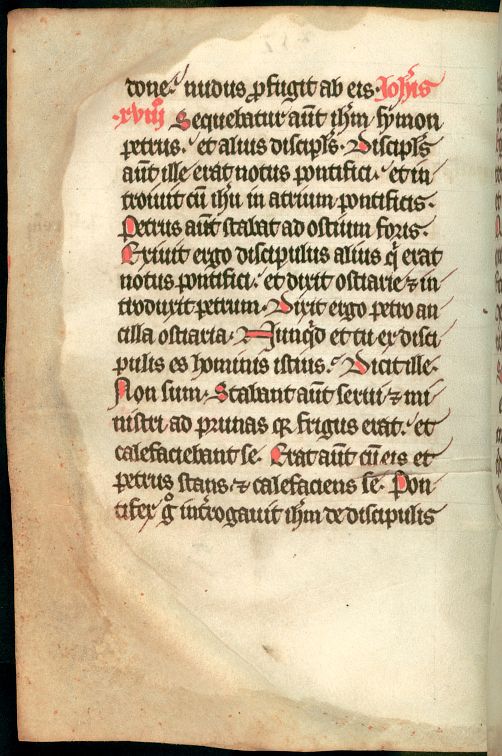 done. nudus ꝓfugit ab eis. Ioh̄is
.xviij. Sequebatur aūt ih̄m symon
petrus. et alius discipl̄s. Discipl̄s
aūt ille erat notus pontifici. et in
troiuit cū ih̄u in atrium pontificis.
Petrus aūt stabat ad ostium foris.
Exiuit ergo discipulus alius q̄ erat
notus pontifici. et dixit ostiarie ⁊ in
troduxit petrum. Dixit ergo petro an
cilla ostiaria. Nunqd̄ et tu ex disci
pulis es hominis istius. Dicit ille.
Non sum. Stabant aūt serui ⁊ mi
nistri ad prunas qꝛ frigus erat. et
calefaciebant se. Erat aūt cū eis et
petrus stans ⁊ calefaciens se. Pon
tifex gͦ int̄rogauit ih̄m de discipulis